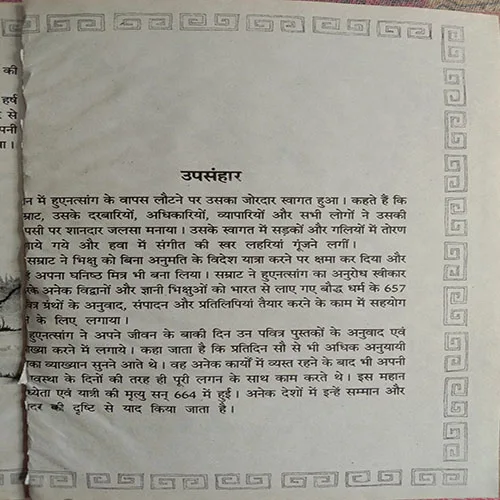 की
हर्ष
से
पनी
ा।
उपसंहार
न में हुएनत्सांग के वापस लौटने पर उसका जोरदार स्वागत हुआ। कहते हैं कि
म्राट, उसके दरबारियों, अधिकारियों, व्यापारियों और सभी लोगों ने उसकी
पसी पर शानदार जलसा मनाया। उसके स्वागत में सड़कों और गलियों में तोरण
ाये गये और हवा में संगीत की स्वर लहरियां गूंजने लगीं।
सम्राट ने भिक्षु को बिना अनुमति के विदेश यात्रा करने पर क्षमा कर दिया और
अपना घनिष्ठ मित्र भी बना लिया। सम्राट ने हुएनत्सांग का अनुरोध स्वीकार
रके अनेक विद्वानों और ज्ञानी भिक्षुओं को भारत से लाए गए बौद्ध धर्म के 657
ग्रंथों के अनुवाद, संपादन और प्रतिलिपियां तैयार करने के काम में सहयोग
के लिए लगाया।
हुएनत्सांग ने अपने जीवन के बाकी दिन उन पवित्र पुस्तकों के अनुवाद एवं
ाख्या करने में लगाये। कहा जाता है कि प्रतिदिन सौ से भी अधिक अनुयायी
का व्याख्यान सुनने आते थे। वह अनेक कार्यों में व्यस्त रहने के बाद भी अपनी
वस्था के दिनों की तरह ही पूरी लगन के साथ काम करते थे। इस महान
ध्येता एवं यात्री की मृत्यु सन् 664 में हुई। अनेक देशों में इन्हें सम्मान और
दर की दृष्टि से याद किया जाता है।